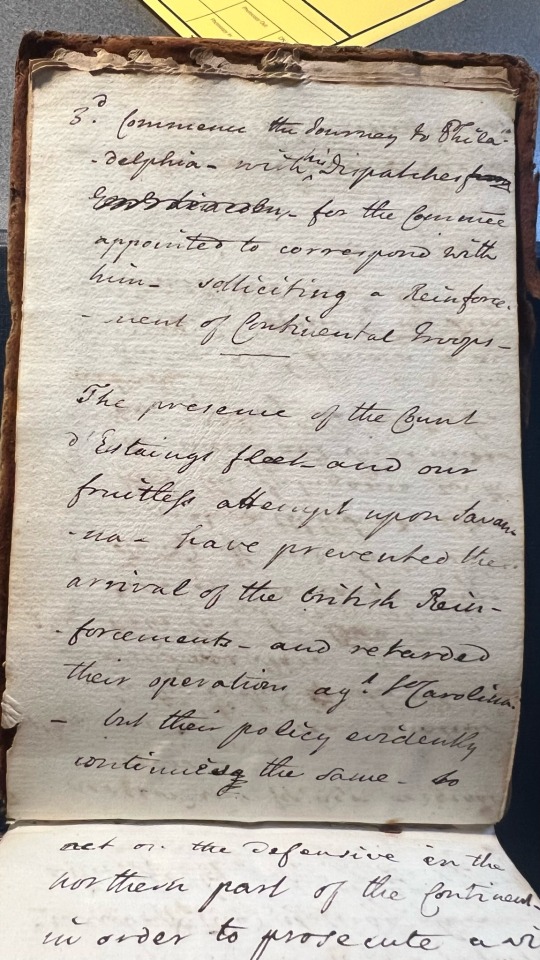 3.d Commence the Journey to Phila-
-delphia - with his Dispatches from
for the Commee
appointed to correspond with
him - solliciting a Reinforce-
-ment of Continental Troops -
The presence of the Count
d'Estaings fleet - and our
fruitless attempt upon Savan
-na - have prevented the
arrival of the british Rein-
-forcements - and retarded
their operations agt. So Carolina.
- but their policy evidently
continues the same - to
act on the Defensive in the
northern part of the Continent -
in order to prosecute a